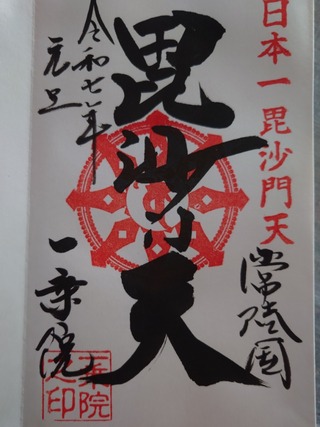 日本一毘沙門天
常陸国
毘沙門天
令和七年
元旦
一乗院
一乗院
之印